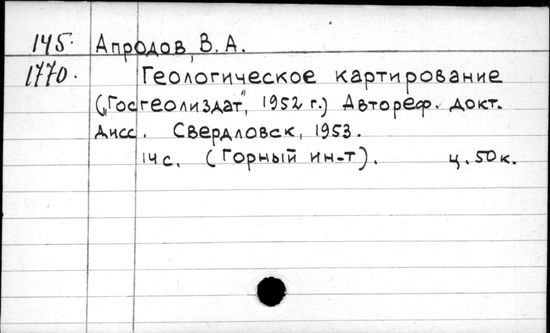 145. Апродов, В. А.
1770. Геологическое картирование
("Госгеолиздат", 1952 г.) Автореф. докт.
дисс. Свердловск, 1953.
14 с. (Горный ин-т). ц. 50 к.